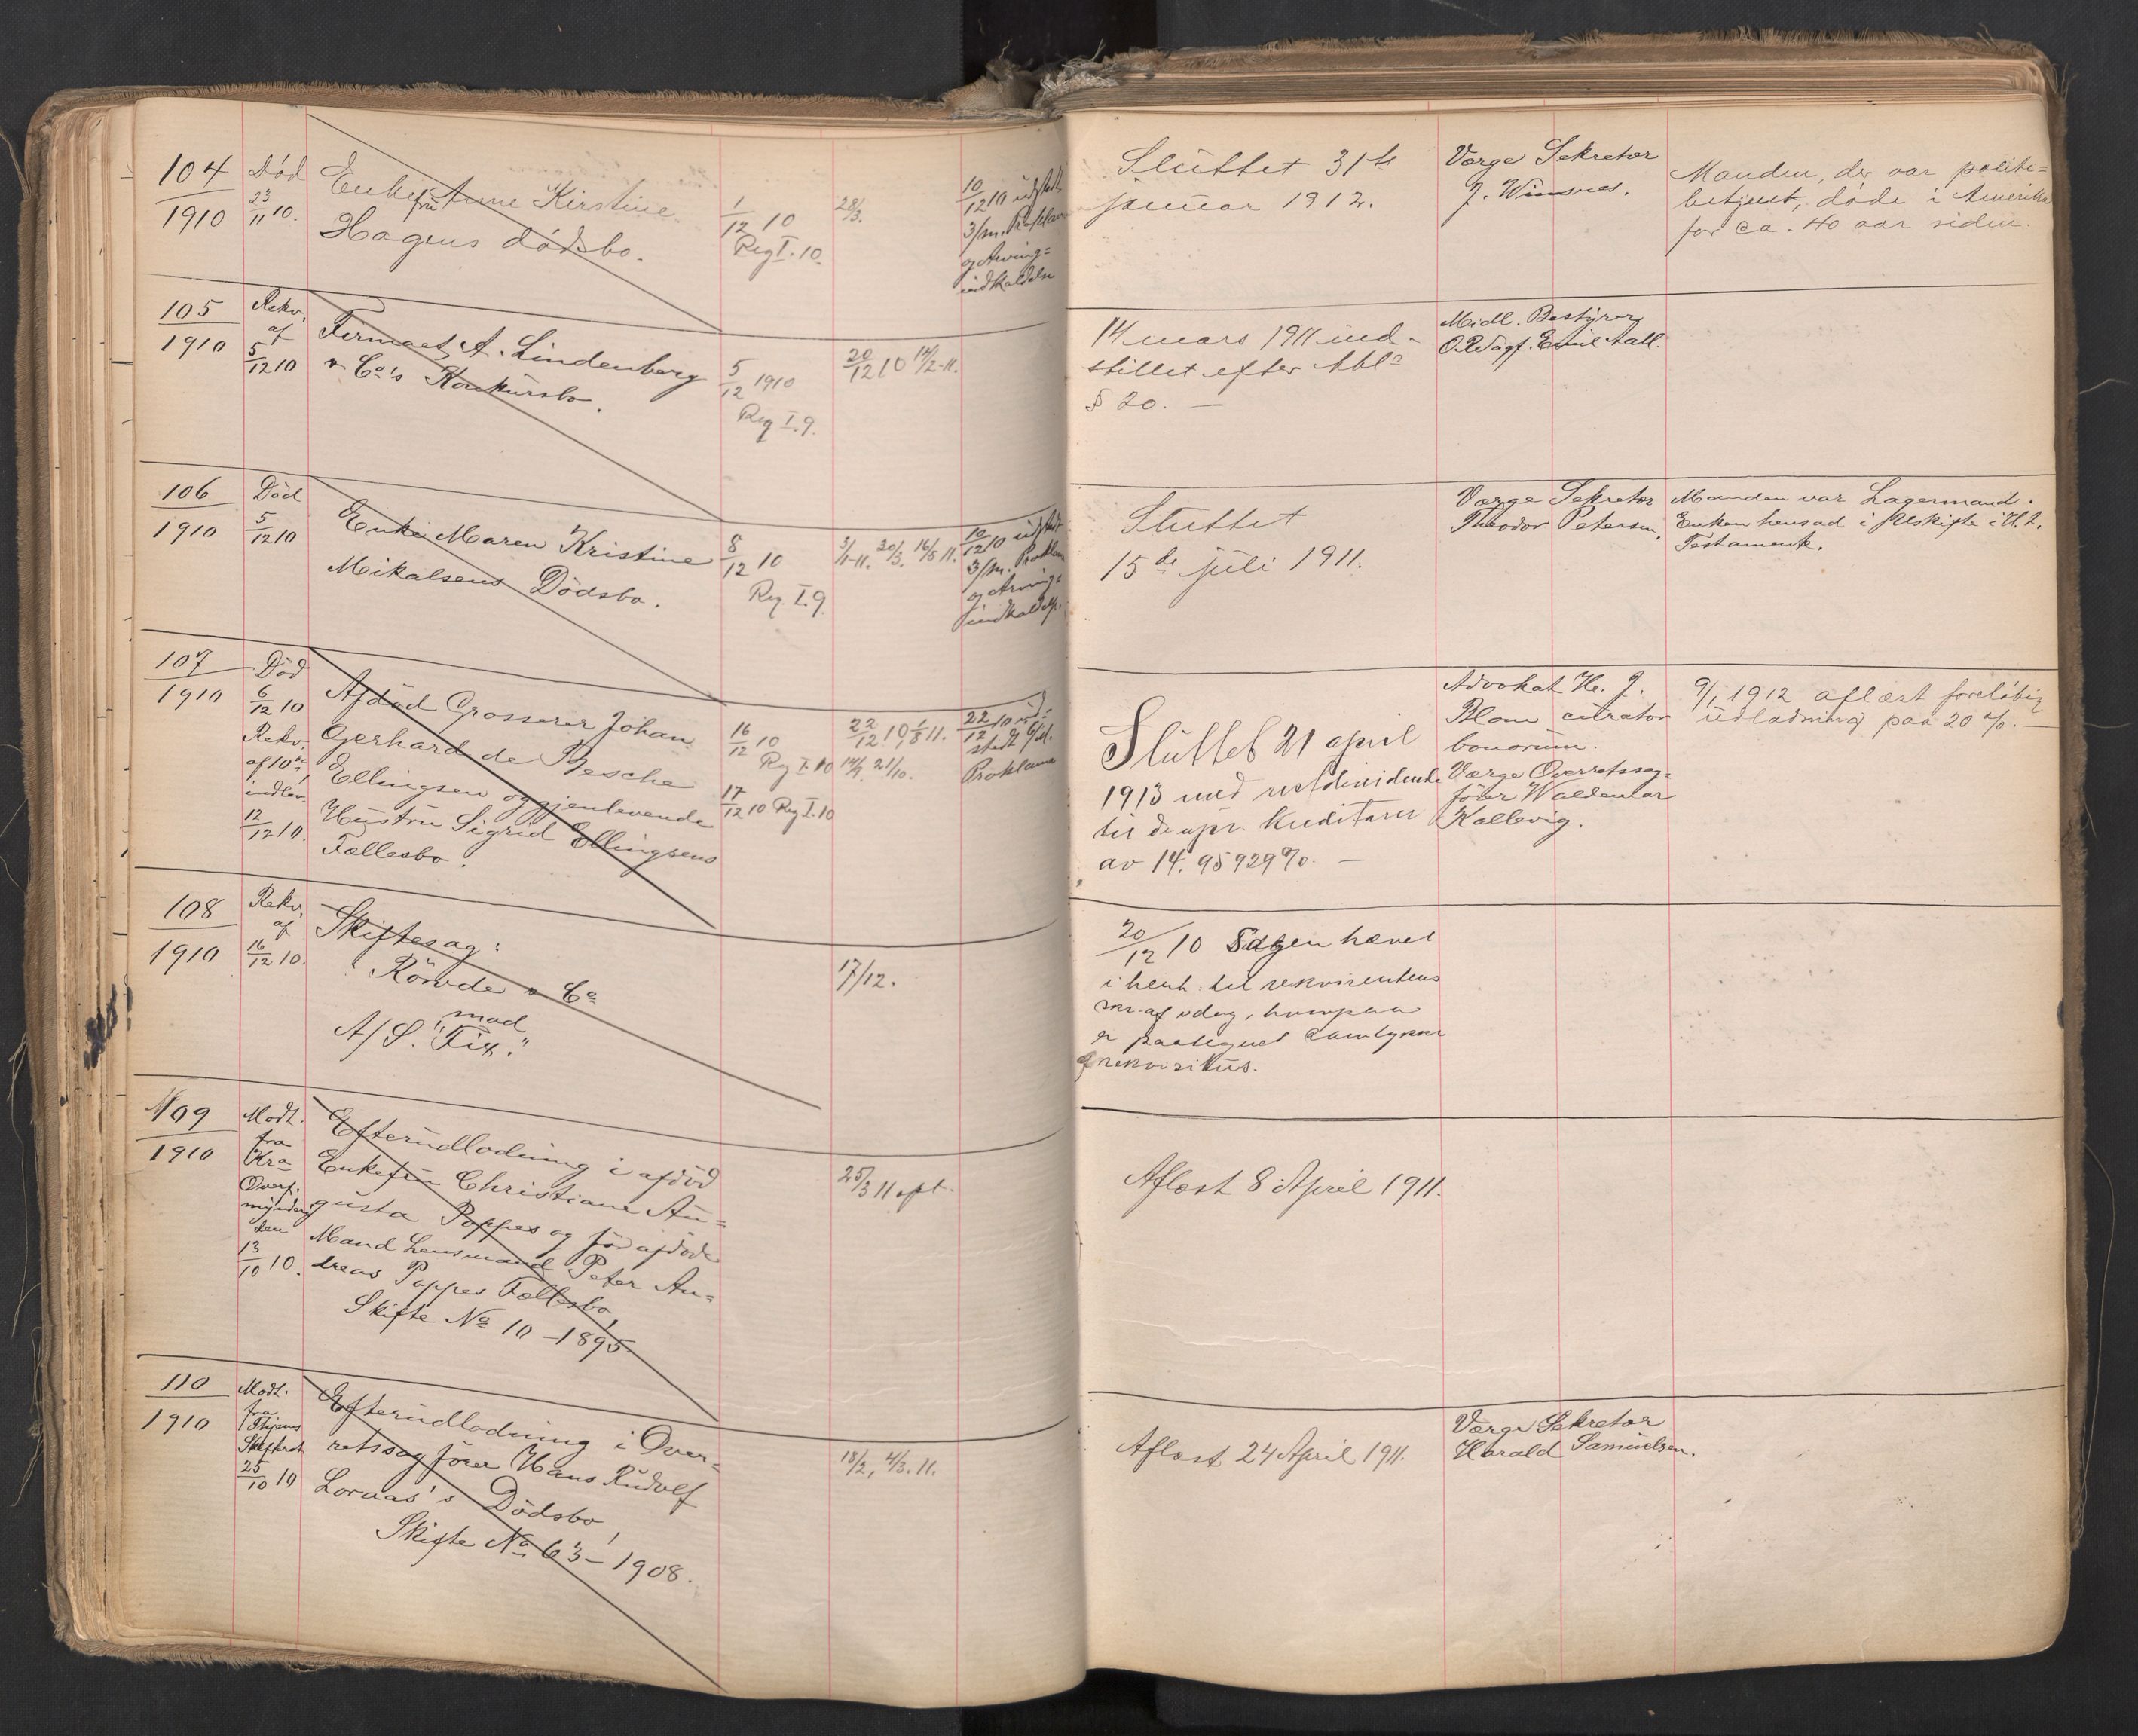 104
1910
Død
23/11 10.
Enkefru Anne Kirstine
Hagens dødsbo.
1/12 10
Reg I. 10.
28/3.
10/12 10 udstedt
3/m. Proklama
og Arving=
indkaldelse
Sluttet 31te
januar 1912.
Værge Sekretær
J. Wimsnes.
Manden, der var politi=
betjent, døde i Amerika
for ca. 40 aar siden.
105
1910
Rekv.
af
5/12 10
Firmaet A. Lindenberg
& Co's Konkursbo.
5/12 1910
Reg I. 9.
20/12 10 14/2-11.
14 mars 1911 ind-
stillet efter
§ 20. —
Midl. Bestyrer
O.R.sagf. Emil Aall.
106
1910
Død
5/12 10
Enke Maren Kristine
Mikalsens Dødsbo.
8/12 10
Reg. I. 9.
3/1-11. 20/3. 16/5 11.
10/12 10 udstedt
3/m. Proklama
og Arving=
indkaldelse
Sluttet
15de juli 1911.
Værge Sekretær
Theodor Petersen.
Manden var Lagermand.
Enken hensad i uskifte i H. t.
Testament.
107
1910
Død
6/12 10
Rekv.
af 10de,
indlev.
12/12 10.
Afdød Grosserer Johan
Gerhard de Besche
Ellingsen og gjenlevende
Hustru Sigrid Ellingsens
Fællesbo.
16/12 10
Reg I. 10
17/12 10 Reg I. 10
22/12 10, 1/8 11.
14/9. 21/10.
22/12 10 ud-
stedt 6/m.
Proklama
Sluttet 21 april
1913 med restdividende
til de upr. kreditorer
av 14.95929%. —
Advokat H. J.
Blom curator
bonorum.
Værge Overretssag=
fører Waldemar
Kallevig.
9/1 1912 aflæst foreløbig
udlodning paa 20%. —
108
1910
Rekv.
af
16/12 10.
Skiftesag:
Rönnde & Co
mod
A/S. "Fix."
17/12.
20/12 10 Sagen hævet
i henh. til rekvirentens
skr. af idag, hvorpaa
er paategnet samtykke
af rekvisitus.
109
1910
Modt.
fra
Kra
Overf.
mynderi
den
13/10 10.
Efterudlodning i afdød
Enkefru Christiane Au=
gusta Poppes og før afdøde
Mand Lensmand Peter An=
dreas Poppes Fællesbo,
Skifte No 10 - 1895.
25/3 11 opt.
Aflæst 8 April 1911.
110
1910
Modt.
fra
Thjems
Skifteret
25/10 10
Efterudlodning i Over=
retssagfører Hans Rudolf
Lornas's Dødsbo,
Skifte No 63 - 1908.
18/2, 4/3. 11.
Aflæst 24 April 1911.
Værge Sekretær
Harald Samuelsen.